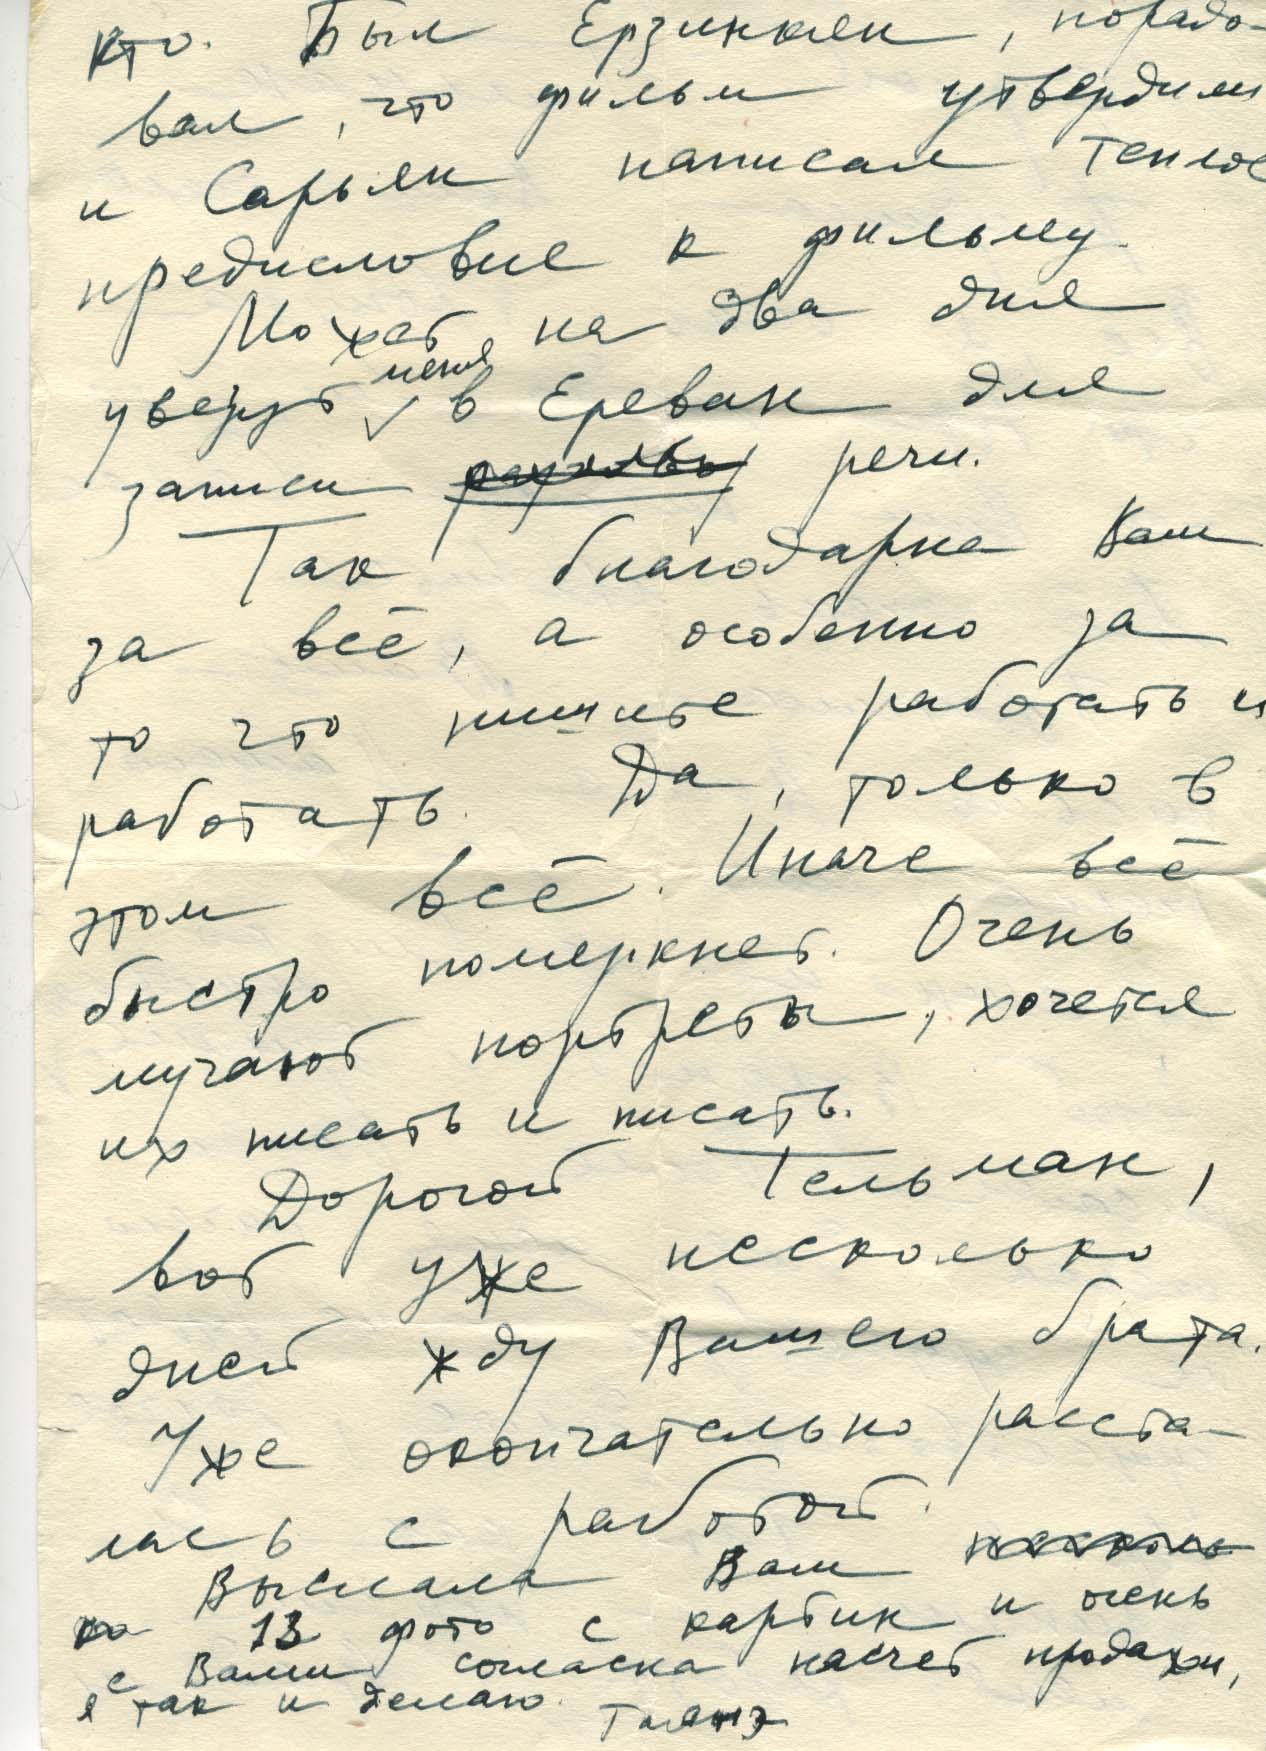 кто. Был Ерзинкян, порадо-
вал, что фильм утвердили
и Сарьян написал теплое
предисловие к фильму.
Может на два дня
увезут меня в Ереван для
записи речи.
Так благодарна Вам
за всё, а особенно за
то что пишите работать и
работать. Да, только в
этом всё. Иначе всё
быстро померкнет. Очень
мучают портреты, хочется
их писать и писать.
Дорогой Тельман,
вот уже несколько
дней жду Вашего брата.
Уже окончательно расста-
лась с работой.
Выслала Вам
13 фото с картин и очень
с Вами согласна насчет продажи,
я так и делаю. Гаянэ